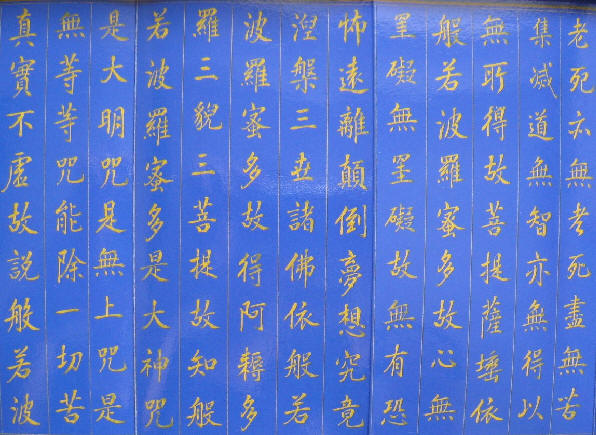 老死亦無老死盡無苦
集減道無智亦無得以
無所得故菩提薩埵依
般若波羅蜜多故心無
罣礙無罣礙故無有恐
怖遠離顛倒夢想究竟
涅槃三世諸佛依般若
波羅蜜多故得阿耨多
羅三貌三菩提故知般
若波羅蜜多是大神咒
是大明咒是無上咒是
無等等咒能除一切苦
真實不虛故說般若波